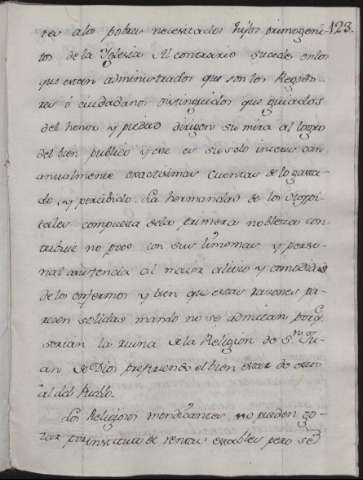 res a los pobres necesitados hijos primogeni- 123.
tos de la Yglesia Al contrario sucede en los
que estan administrados que son los Regido-
res ó ciudadanos distinguidos que guiados
del honor y piedad dirigen su mira al logro
del bien publico y este es su solo interes dan
anualmente exactisimas cuentas de lo gasta-
do y percibido. La hermandad de los Hospi-
tales compuesta de la primera nobleza con-
tribuie no poco con sus limosnas y perso-
nal asistencia al maior alivio y comodidad
de los enfermos y bien que estas razones pa-
recen solidas mando no se admitan porq.e
serian la ruina de la Religion de S.n Ju-
an de Dios prefiriendo el bien estar de esta
al del Pueblo.
Los Religiosos mendicantes no pueden go-
zar por instituto de rentas estables pero se